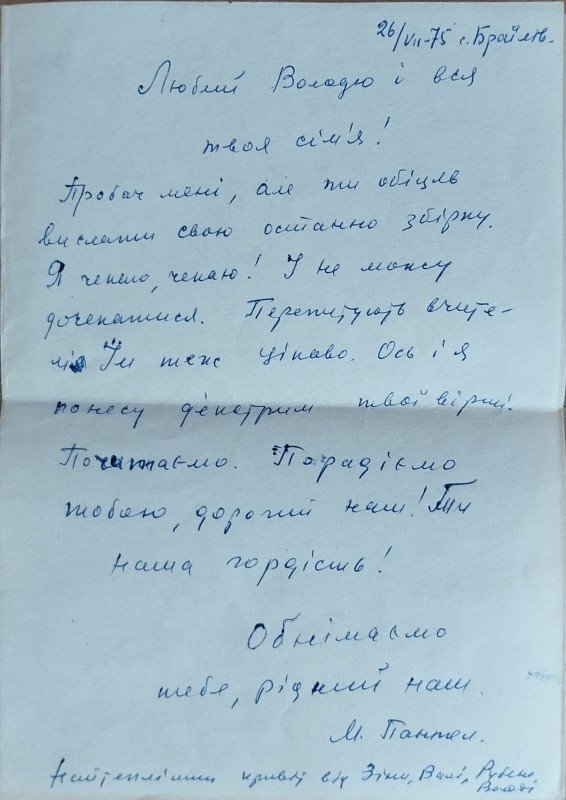 26/VII-75 с. Браїлів.
Любий Володю і вся
твоя сім'я!
Пробач мені, але ти обіцяв
вислати свою останню збірку.
Я чекаю, чекаю! І не можу
дочекатися. Перепитують вчите-
лі. Їм теж цікаво. Ось і я
понесу декотрим твої вірші.
Почитаємо. Порадіємо
тобою, дорогий наш! Ти
наша гордість!
Обнімаємо
тебе, рідний наш.
М. Пантел.
Найтепліший привіт від Зіни, Валі, Рубена,
Володі